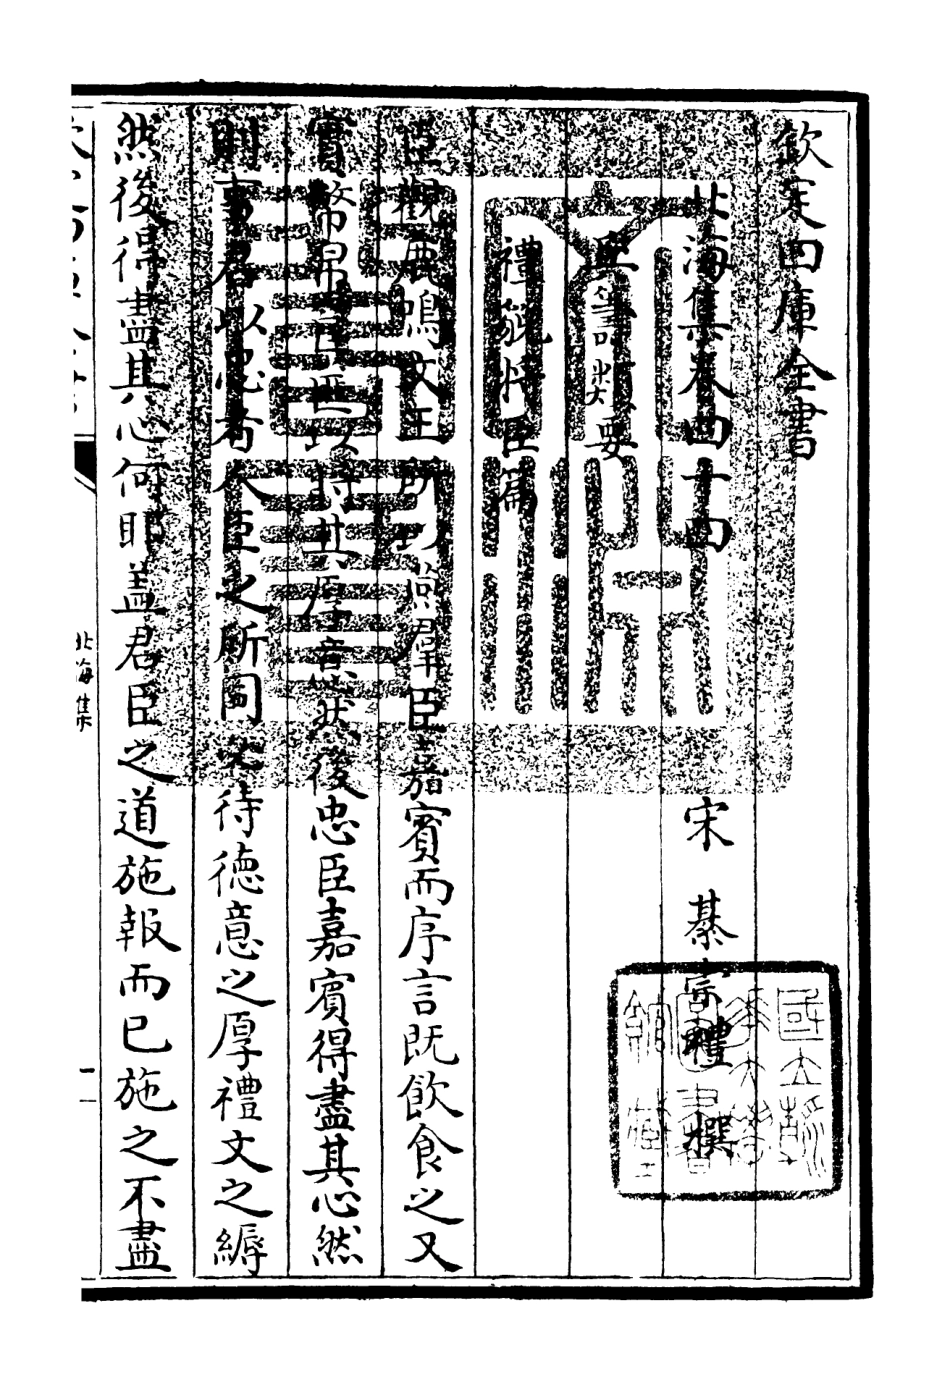 欽定四庫全書
北海集卷四十四
宋 綦崇禮 撰
兵籌類要
禮貌將臣篇
臣觀鹿鳴文王所以燕群臣嘉賓而序言既飲食之又
實幣帛筐篚以將其厚意然後忠臣嘉賓得盡其心然
則事君以忠者人臣之所同必待德意之厚禮文之縟
然後得盡其心何耶蓋君臣之道施報而已施之不盡
北海集
一